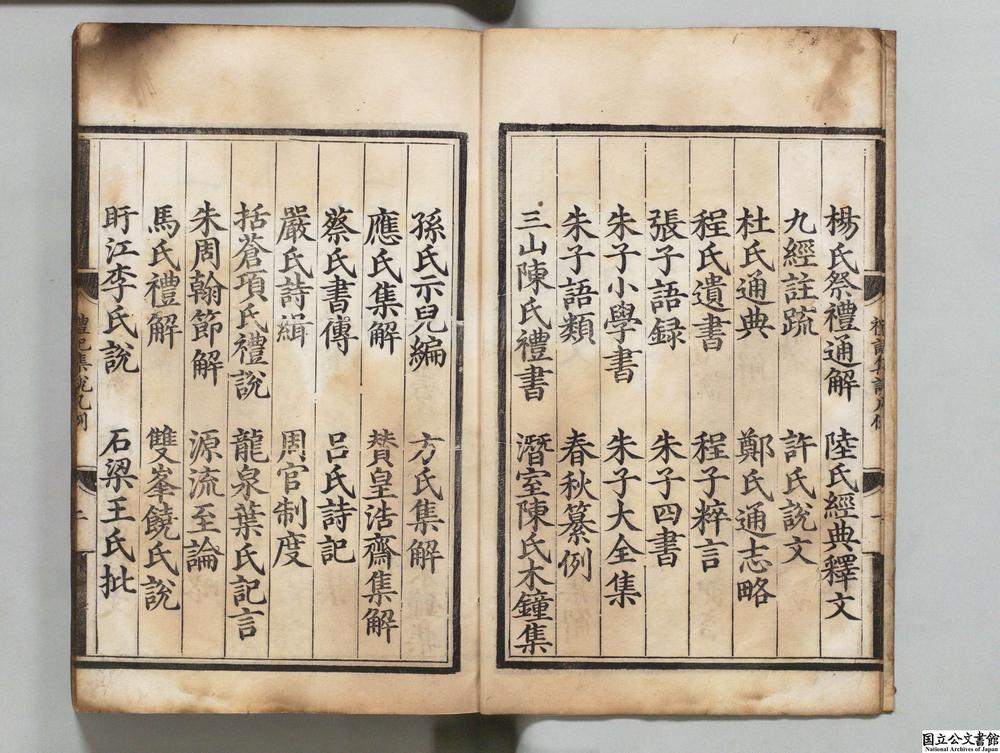 楊氏祭禮通解　陸氏經典釋文
九經註䟽　許氏說文
杜氏通典　鄭氏通志略
程氏遺書　程子粹言
張子語録　朱子四書
朱子小學書　朱子大全集
朱子語類　春秋纂例
三山陳氏禮書　潛室陳氏木鐘集
孫氏示兒編　方氏集解
應氏集解　賛皇浩齋集解
蔡氏書傳　呂氏詩記
嚴氏詩緝　周官制度
括蒼項氏禮說　龍泉葉氏記言
朱周翰節解　源流至論
馬氏禮解　雙峯饒氏說
盱江李氏說　石梁王氏批
禮記集說凡例　二
国立公文書館
National Archives of Japan